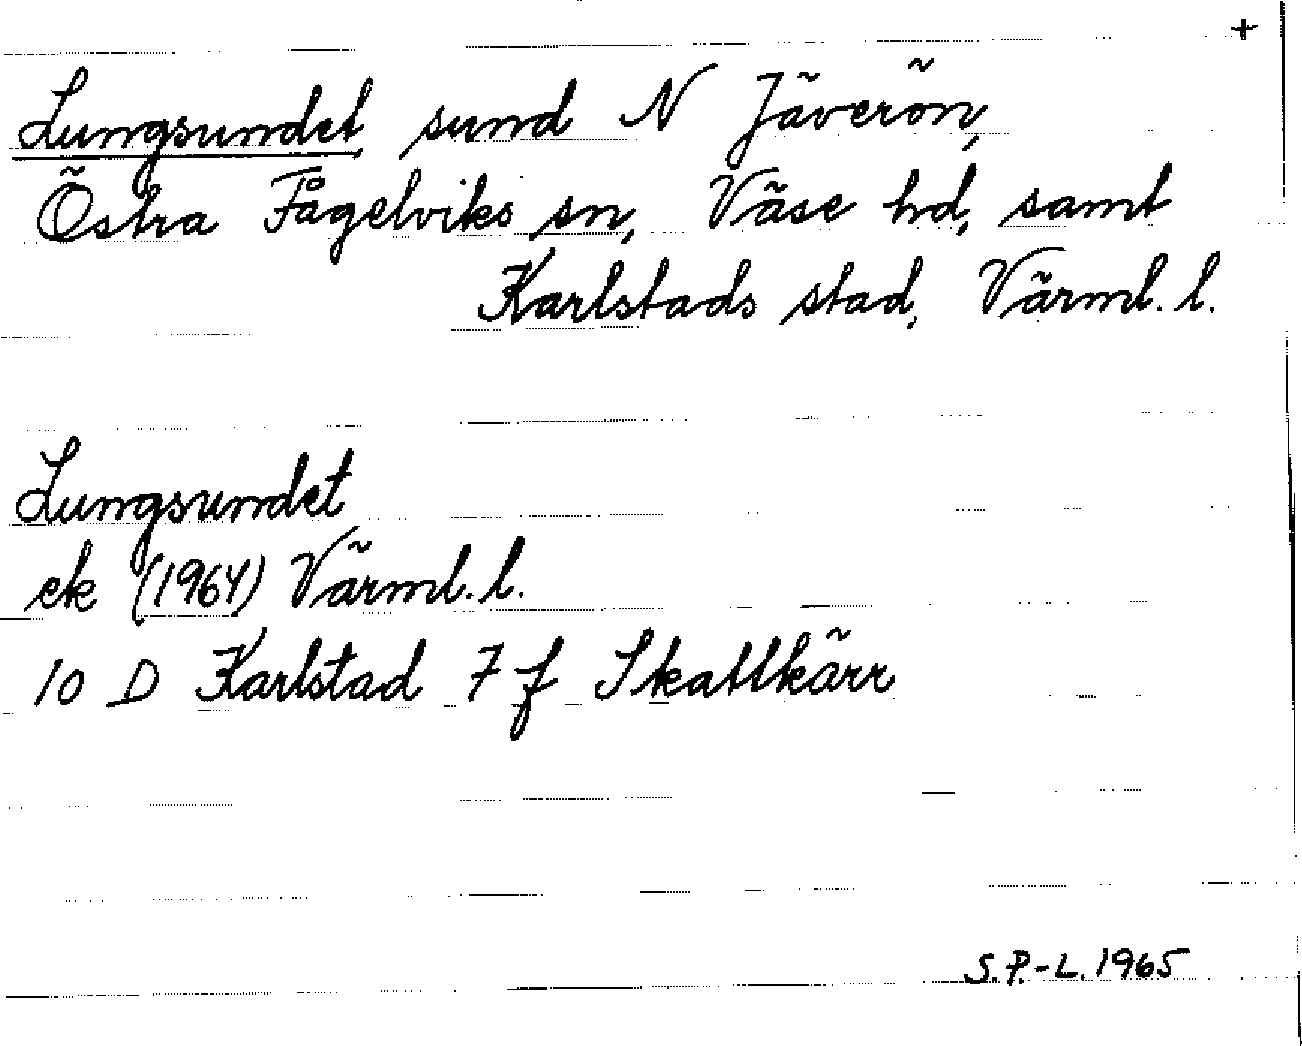 +
Lungsundet, sund N Jäverön,
Östra Fågelviks sn, Väse hd, samt
Karlstads stad, Värml. l.
Lungsundet
ek (1964) Värml. l.
10 D Karlstad 7 f Skattkärr
S.P.-L. 1965